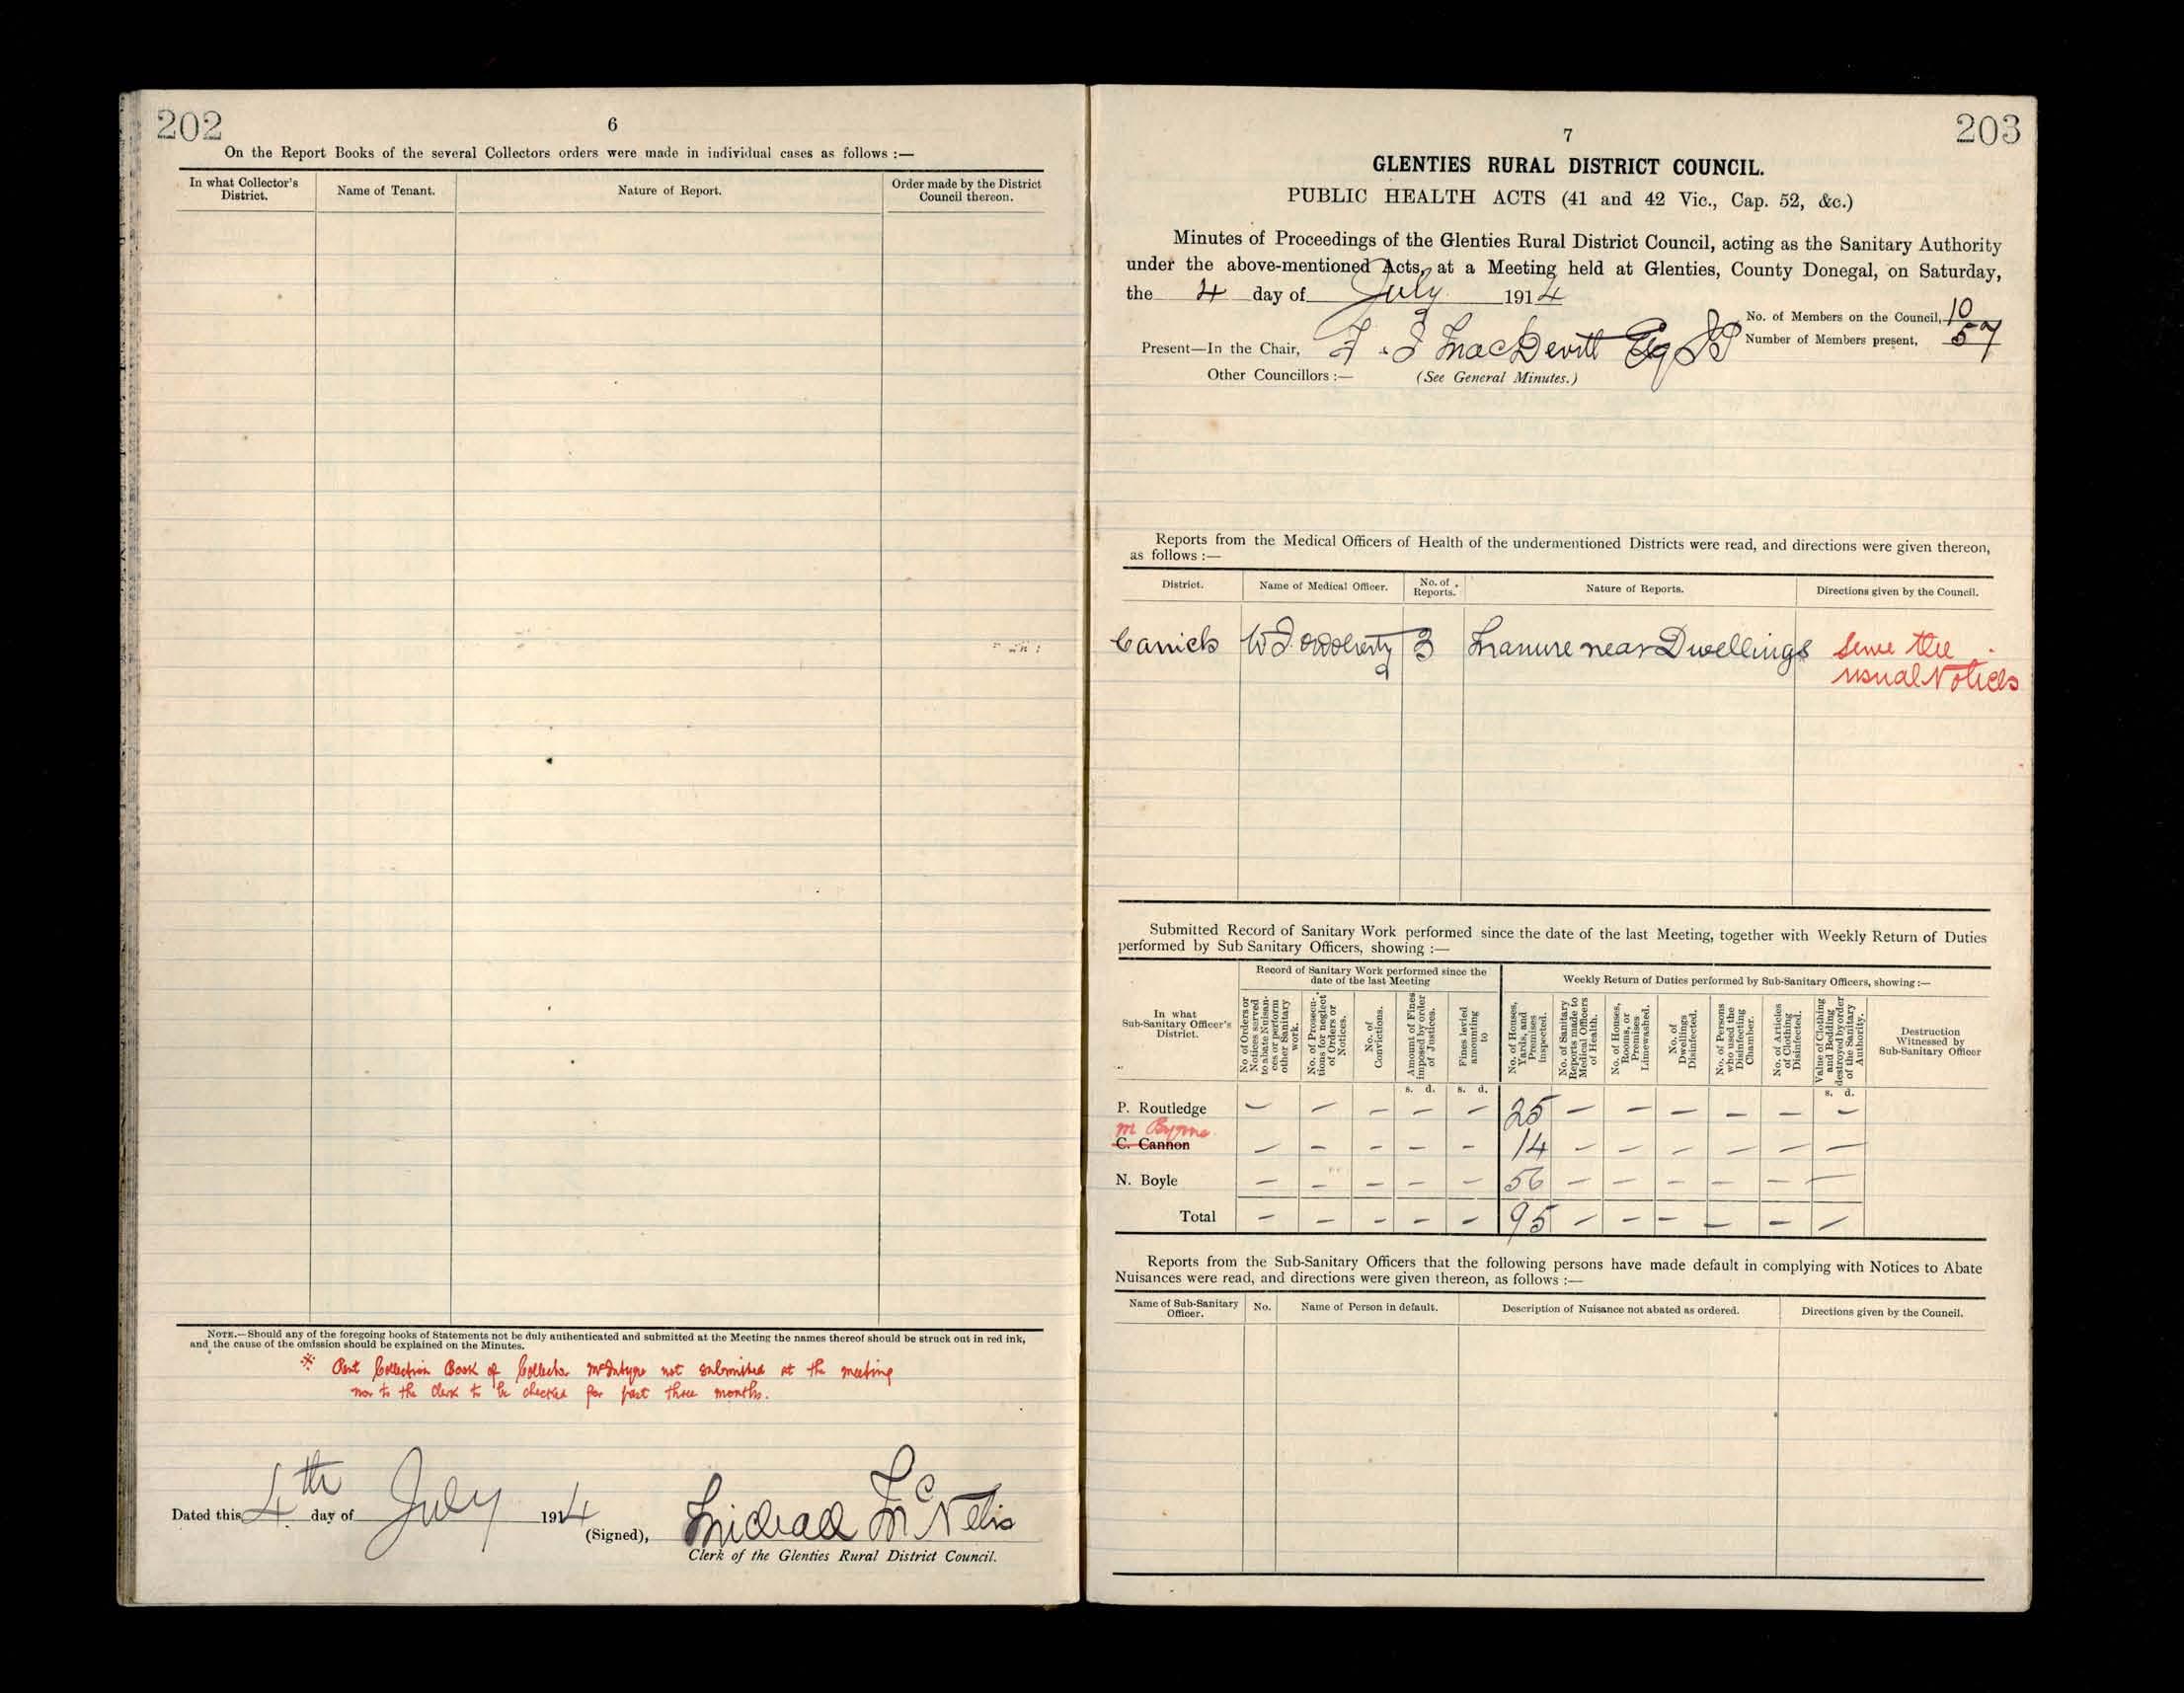 202
6
On the Report Books of the several Collectors orders were made in individual cases as follows :—
In what Collector's District.
Name of Tenant.
Nature of Report.
Order made by the District Council thereon.
NOTE.—Should any of the foregoing books of Statements not be duly authenticated and submitted at the Meeting the names thereof should be struck out in red ink,
and the cause of the omission should be explained on the Minutes.
* Rent Collection Book of Collector McIntyre not submitted at the meeting
nor to the Clerk to be checked for past three months.
Dated this 4th day of July 1914
(Signed), Michael McNelis
Clerk of the Glenties Rural District Council.
203
7
GLENTIES RURAL DISTRICT COUNCIL.
PUBLIC HEALTH ACTS (41 and 42 Vic., Cap. 52, &c.)
Minutes of Proceedings of the Glenties Rural District Council, acting as the Sanitary Authority
under the above-mentioned Acts, at a Meeting held at Glenties, County Donegal, on Saturday,
the 4 day of July 1914
No. of Members on the Council,
Present—In the Chair, MacDevitt Esq JP
Number of Members present,
Other Councillors :— (See General Minutes.)
Reports from the Medical Officers of Health of the undermentioned Districts were read, and directions were given thereon,
as follows :—
District.
Name of Medical Officer.
No. of Reports.
Nature of Reports.
Directions given by the Council.
Carrick W J O'Doherty 3 Manure near Dwellings Serve the
usual Notices
Submitted Record of Sanitary Work performed since the date of the last Meeting, together with Weekly Return of Duties
performed by Sub Sanitary Officers, showing :—
Record of Sanitary Work performed since the
date of the last Meeting
Weekly Return of Duties performed by Sub-Sanitary Officers, showing :—
In what Sub-Sanitary Officer's District.
No. of Orders or Notices served to abate Nuisances or perform other Sanitary work.
No. of Prosecutions for neglect of Orders or Notices.
No. of Convictions.
Amount of Fines imposed by order of Justices.
Fines levied amounting to
No. of Houses, Yards, and Premises inspected.
No. of Sanitary Reports made to Medical Officers of Health.
No. of Houses, Rooms, or Premises Limewashed.
No. of Dwellings Disinfected.
No. of Persons who used the Disinfecting Chamber.
No. of Articles of Clothing Disinfected.
Value of Clothing and Bedding destroyed by order of the Sanitary Authority.
Destruction Witnessed by Sub-Sanitary Officer
s. d. s. d. s. d.
P. Routledge — — — — — 25 — — — — — —
M Byrne
C. Cannon — — — — — 14 — — — — — —
N. Boyle — — — — — 56 — — — — — —
Total — — — — — 95 — — — — — —
Reports from the Sub-Sanitary Officers that the following persons have made default in complying with Notices to Abate
Nuisances were read, and directions were given thereon, as follows :—
Name of Sub-Sanitary Officer.
No.
Name of Person in default.
Description of Nuisance not abated as ordered.
Directions given by the Council.